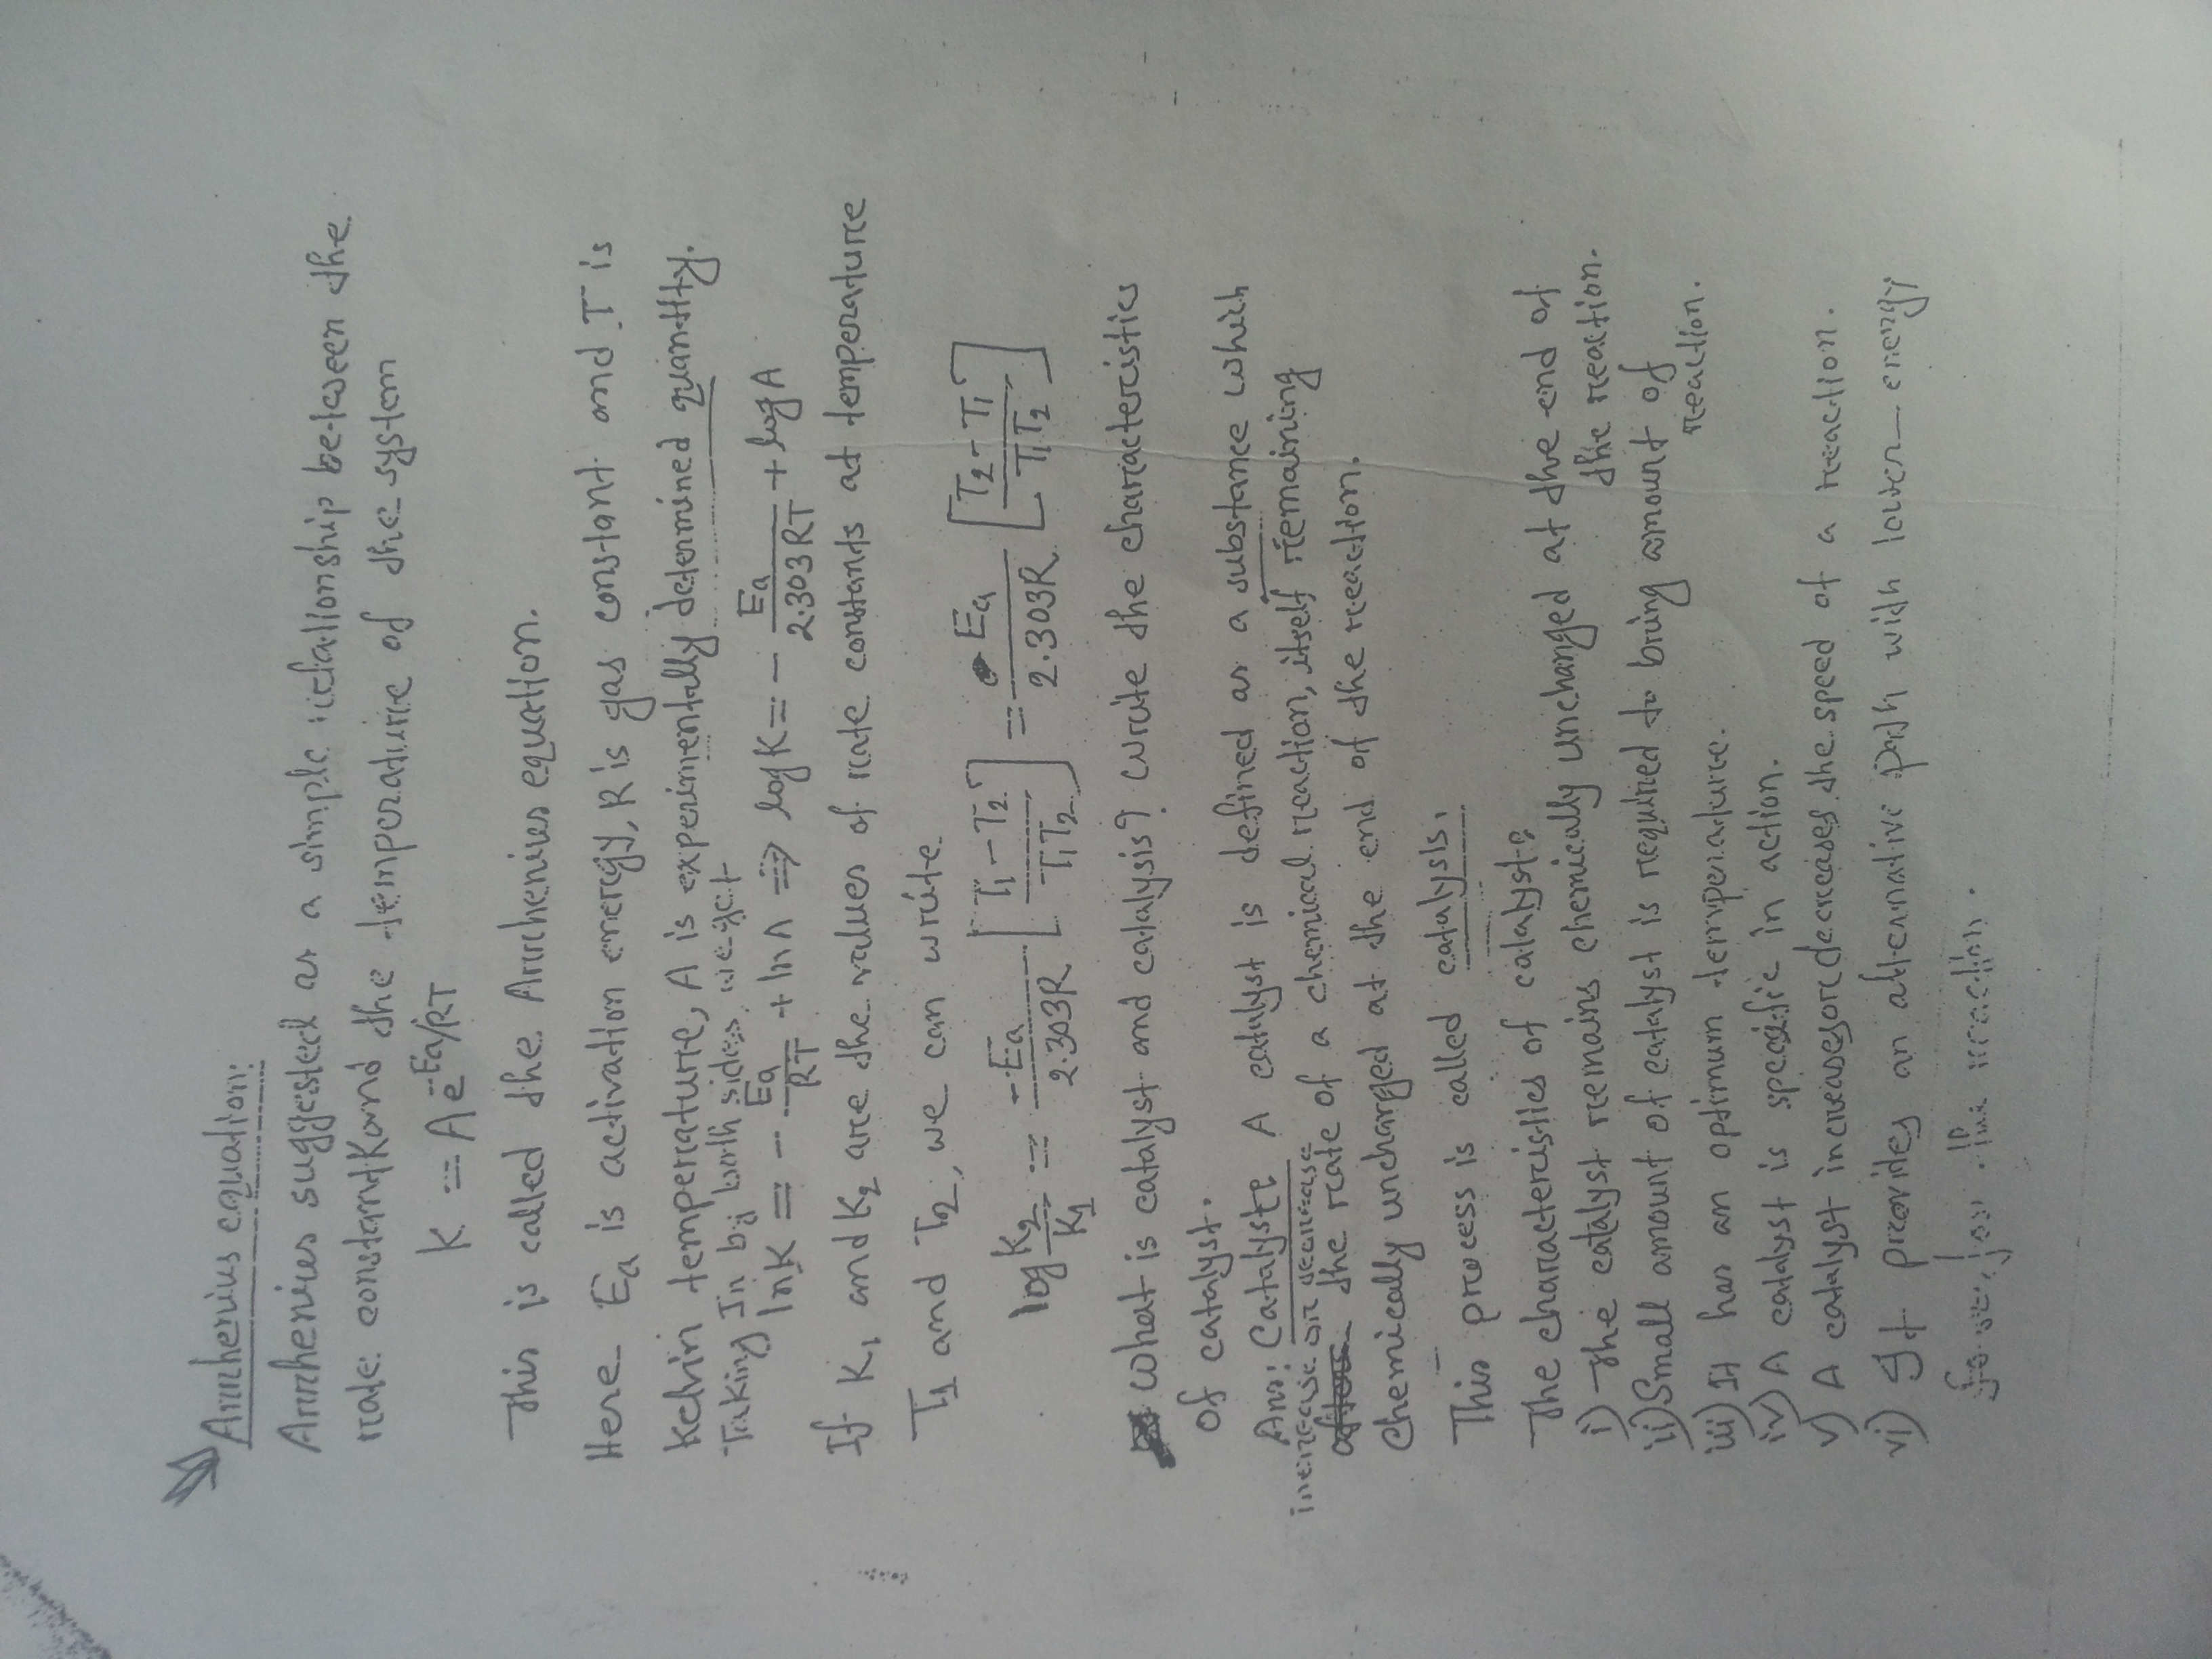 Arrhenius equation:
Arrhenius suggested as a simple relationship between the
rate constant K and the temperature of the system
K = A e^-Ea/RT
This is called the Arrhenius equation.
Here Ea is activation energy, R is gas constant and T is
Kelvin temperature, A is experimentally determined quantity.
Taking In by both sides, we get
lnK = - Ea/RT + ln A ⇒ log K = - Ea/2.303RT + log A
If K₁ and K₂ are the values of rate constants at temperature
T₁ and T₂, we can write
log K₂/K₁ = -Ea/2.303R [T₁-T₂/T₁T₂] = Ea/2.303R [T₂-T₁/T₁T₂]
What is catalyst and catalysis? Write the characteristics
of catalyst.
Ans: Catalyst: A catalyst is defined as a substance which
increase or decrease
the rate of a chemical reaction, itself remaining
chemically uncharged at the end of the reaction.
This process is called catalysis.
The characteristics of catalyst:
i) The catalyst remains chemically unchanged at the end of
the reaction.
ii) Small amount of catalyst is required to bring amount of
reaction.
iii) It has an optimum temperature.
iv) A catalyst is specific in action.
v) A catalyst increases or decreases the speed of a reaction.
vi) It provides an alternative path with lower energy
for the reaction.